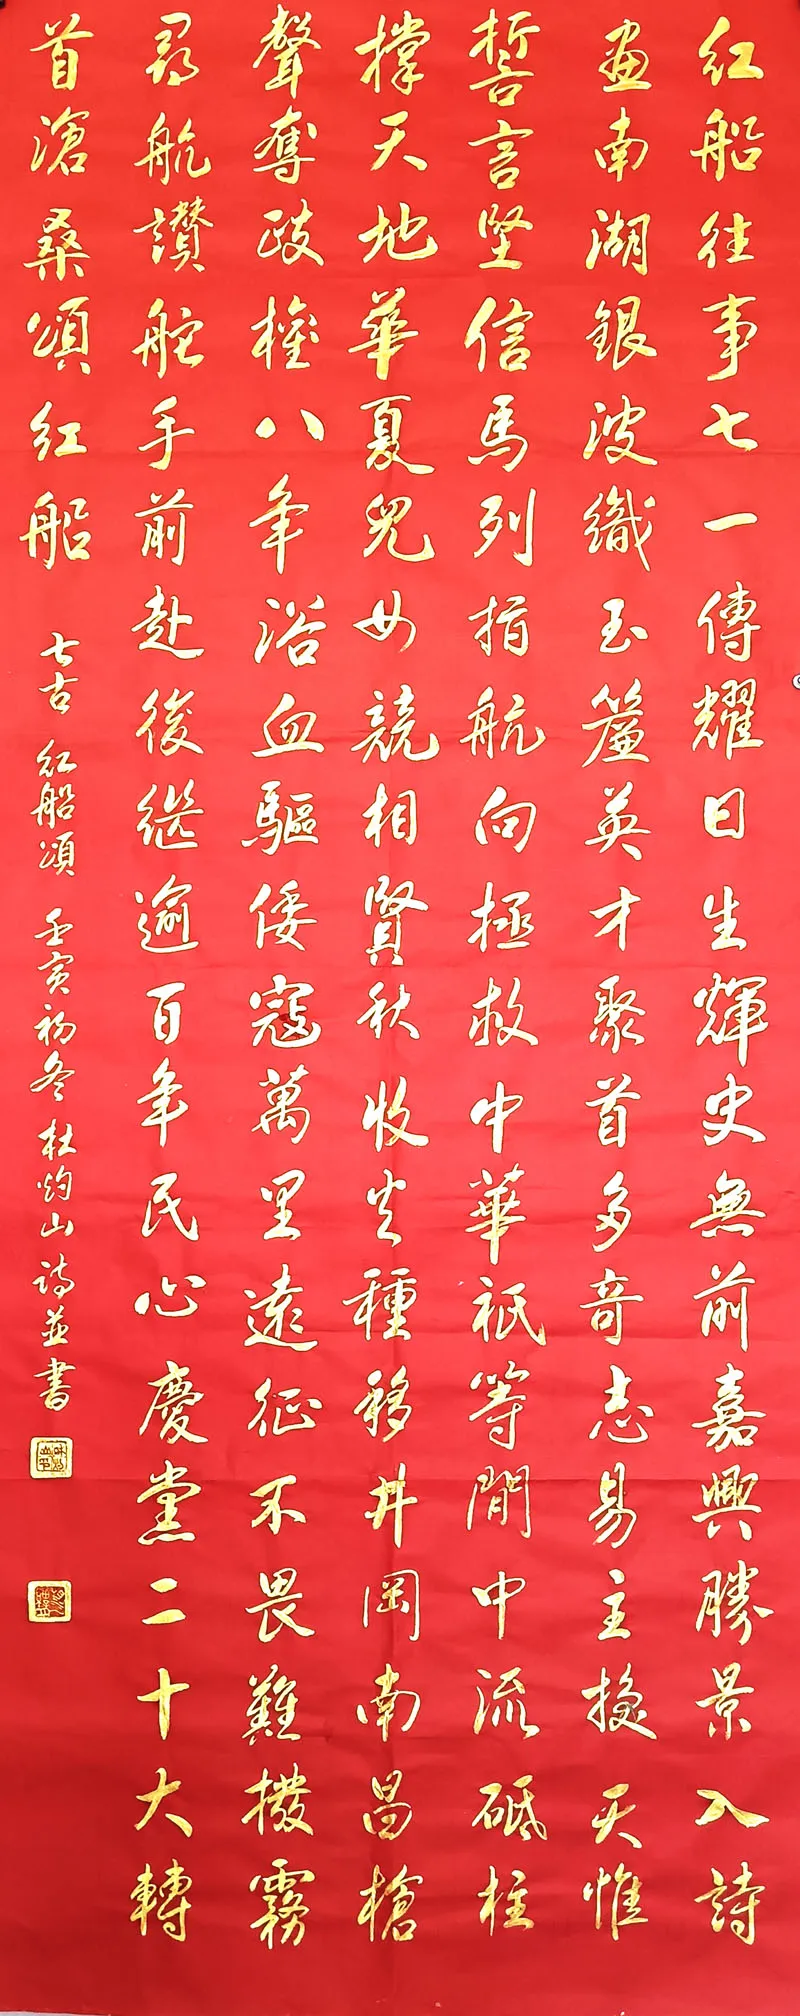 紅船往事七一傳耀日生輝史無前嘉興勝景入詩
畫南湖銀波織玉簾英才聚首多奇志易主換天惟
誓言堅信馬列指航向拯救中華祇等閒中流砥柱
撐天地華夏兒女競相賢秋收火種移井岡南昌槍
聲奪政權八年浴血驅倭寇萬里遠征不畏難撥霧
尋航讚舵手前赴後繼逾百年民心慶黨二十大轉
首滄桑頌紅船
七古 紅船頌 壬寅初冬 杜灼山詩並書